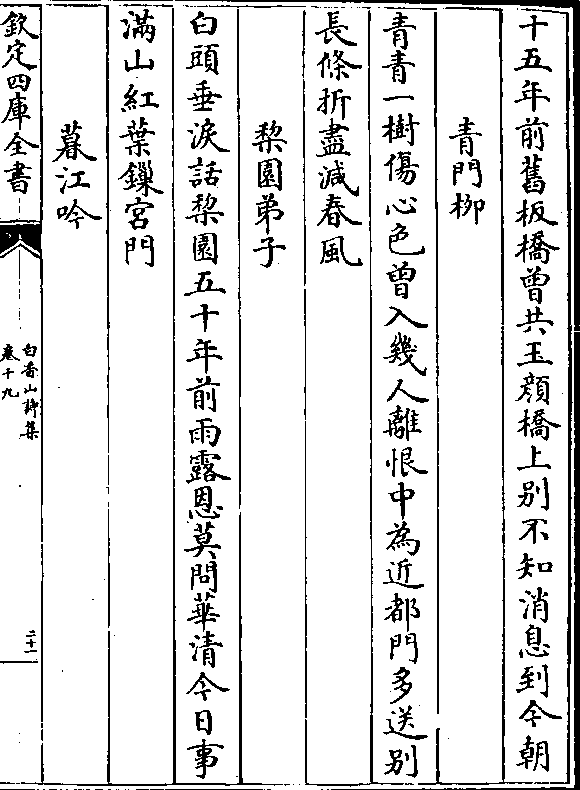 十五年前舊板橋曾共玉顔橋上别不知消息到今朝
青門柳
青青一樹傷心色曾入幾人離恨中為近都門多送别
長條折盡減春風
梨園弟子
白頭垂淚話梨園五十年前雨露恩莫問華清今日事
滿山紅葉鏁宮門
暮江吟
欽定四庫全書
白香山詩集
卷十九
二十一